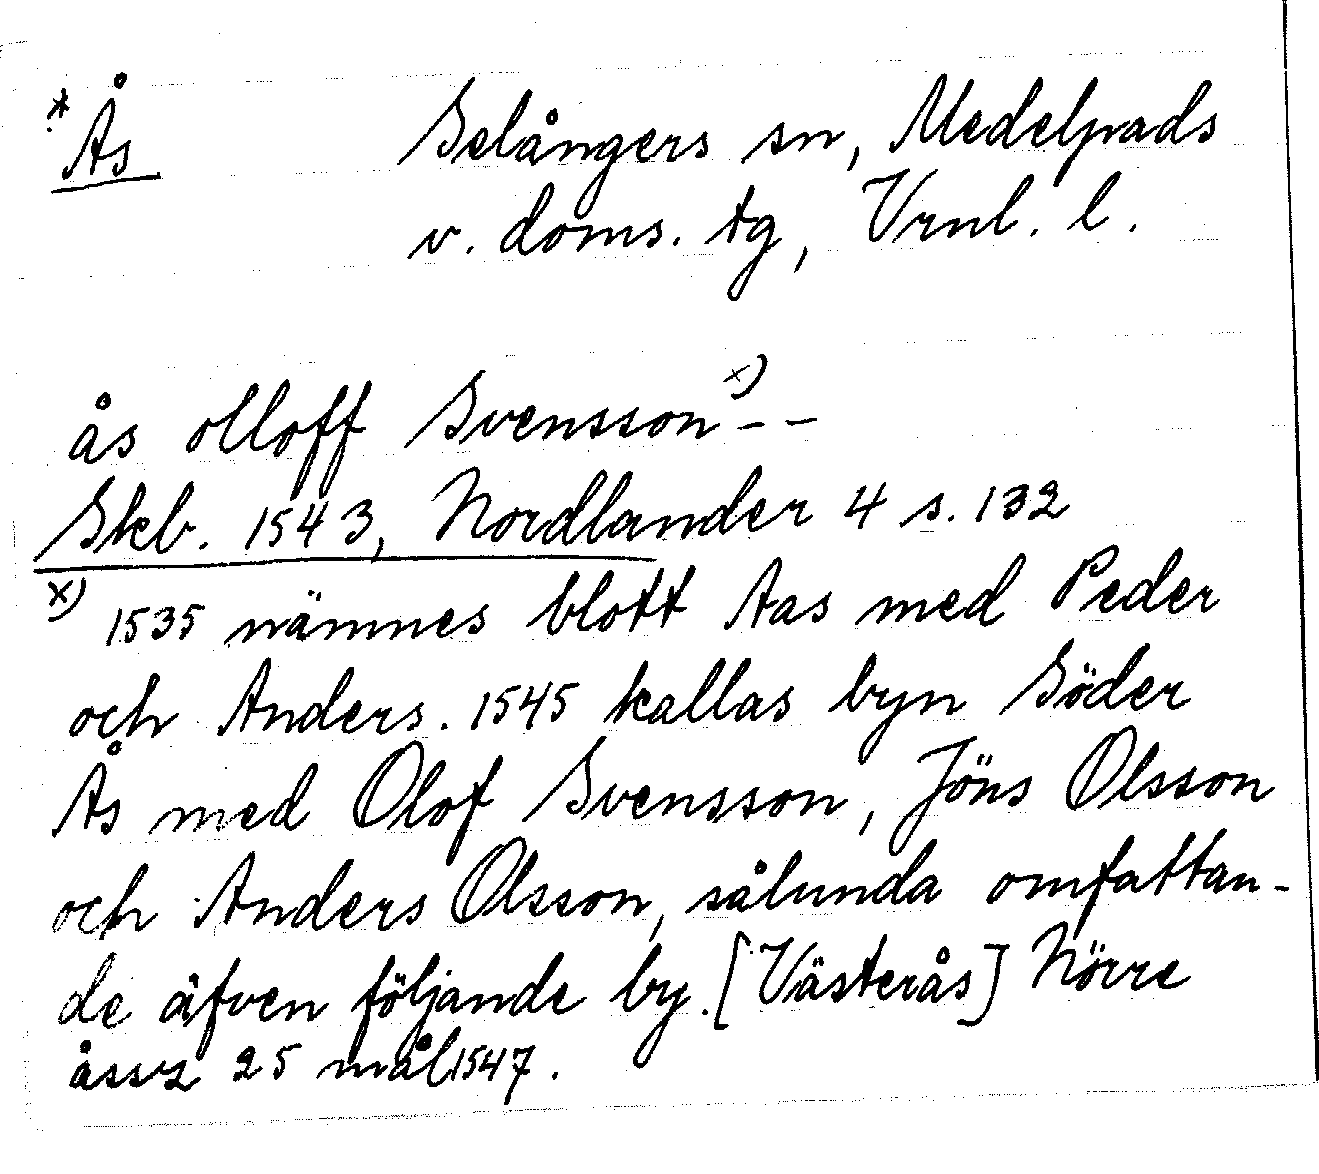 * Ås Selångers sn, Medelpads
v. doms. tg, Vrnl. l.
ås olloff Svensson x) - -
Skb. 1543, Nordlander 4 s. 132
x) 1535 nämnes blott Aas med Peder
och Anders. 1545 kallas byn Söder
Ås med Olof Svensson, Jöns Olsson
och Anders Olsson, sålunda omfattan-
de äfven följande by. [Västerås] Nörre
25 mål 1547.